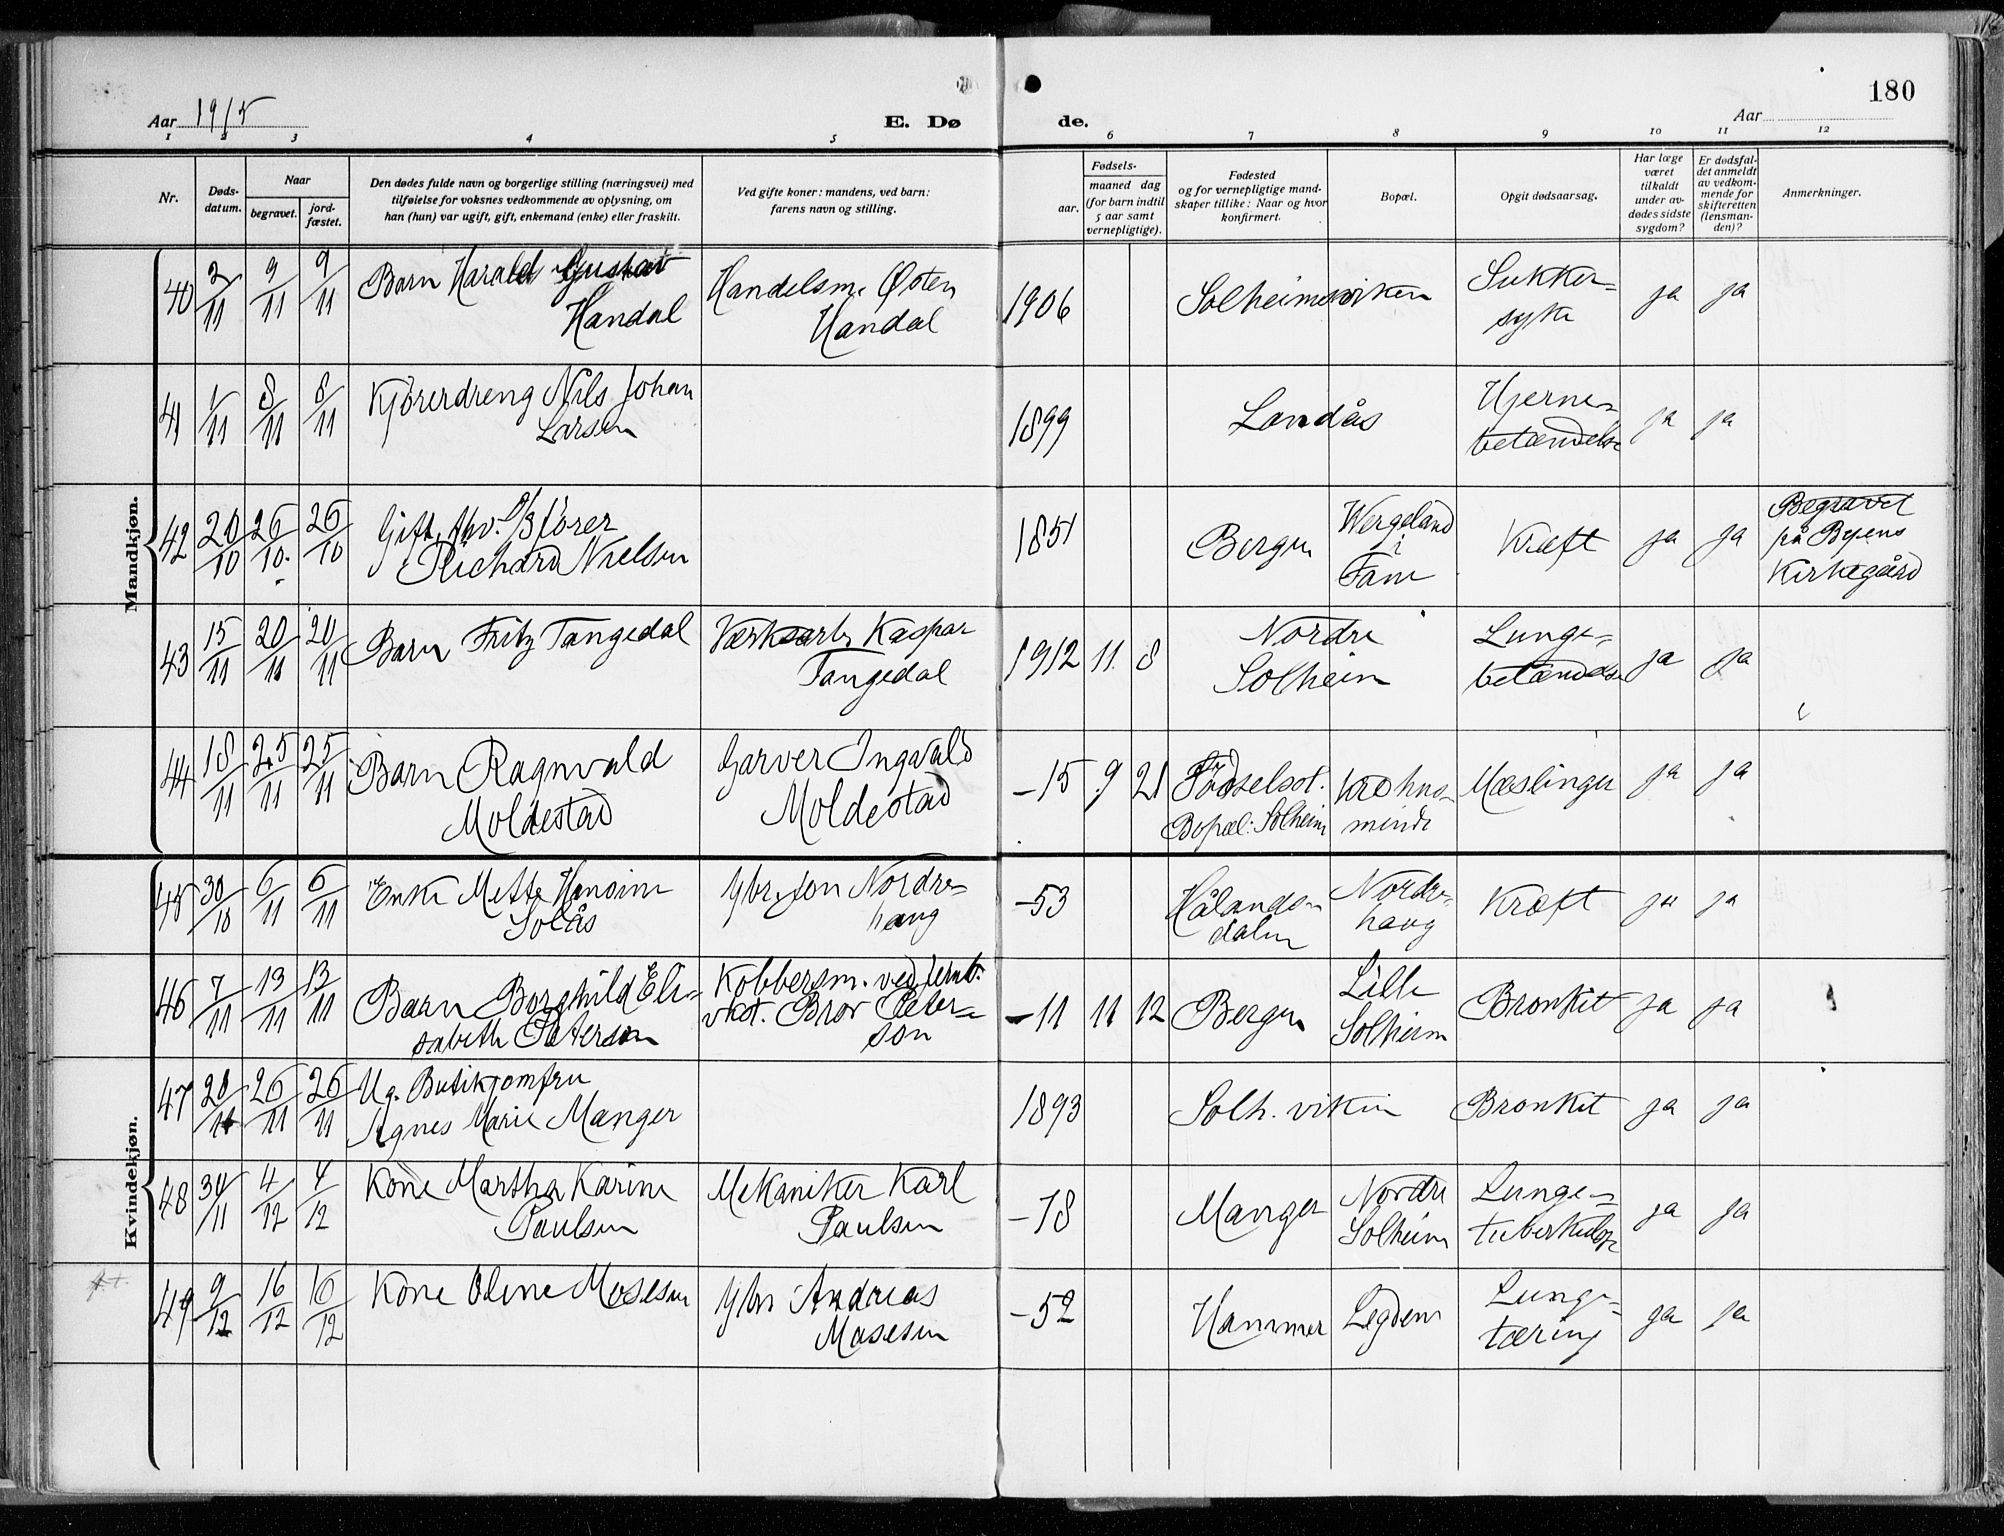 180
Aar 1915
E. Dø
de.
Aar
1 2 3 4 5 6 7 8 9 10 11 12
Nr.
Døds-
datum.
Naar
begravet.
jord-
fæstet.
Den dødes fulde navn og borgerlige stilling (næringsvei) med
tilføielse for voksnes vedkommende av oplysning, om
han (hun) var ugift, gift, enkemand (enke) eller fraskilt.
Ved gifte koner: mandens, ved barn:
farens navn og stilling.
Fødsels-
aar.
maaned dag
(for barn indtil
5 aar samt
vernepligtige).
Fødested
og for vernepligtige mand-
skaper tillike: Naar og hvor
konfirmert.
Bopæl.
Opgit dødsaarsag.
Har læge
været
tilkaldt
under av-
dødes sidste
sygdom?
Er dødsfal-
det anmeldt
av vedkom-
mende for
skifteretten
(lensman-
den)?
Anmerkninger.
Mandkjøn.
40 2/11 9/11 9/11 Barn Harald Gustav
Handal
Handelsm. Østen
Handal
1906 Solheimsviken
Sukker-
syke
ja ja
41 1/11 8/11 8/11 Kjørerdreng Nils Johan
Larsen
1899 Landås
Hjerne-
betændelse
ja ja
42 20/10 26/10. 26/10 Gift, fhv. D/Sfører
Richard Nielsen
1851 Bergen
Wergeland
i
Fane
Kræft ja ja
Begravet
på Byens
Kirkegård
43 15/11 20/11 20/11 Barn Fritz Tangedal
Værksarb. Kaspar
Tangedal
1912 11 8
Nordre
Solheim
Lunge-
betændelse
ja ja
44 18/11 25/11 25/11 Barn Ragnvald
Moldestad
Garver Ingvald
Moldestad
-15 9 21
Fødselsst.
Bopæl: Solheim
Krohns-
minde
Mæslinger ja ja
Kvindekjøn.
45 30/10 6/11 6/11 Enke Mette
Solås
Gbr. Jon Nordre-
haug
-53
Hålands-
dalen
Nordre-
haug
Kræft ja ja
46 7/11 13/11 13/11 Barn Borghild Eli-
sabeth Peterson
Kobbersm. ved Jernb.
Bror Peter-
son
-11 11 12 Bergen
Lille
Solheim
Bronkit ja ja
47 20/11 26/11 26/11 Ug. Butikjomfru
Agnes Marie Manger
1893 Solh. viken Bronkit ja ja
48 30/11 4/12 4/12 Kone Martha Karine
Paulsen
Mekaniker Karl
Paulsen
-78 Manger
Nordre
Solheim
Lunge-
tuberkulose
ja ja
49 9/12 16/12 16/12 Kone Oline Mosesen
Gbr Andreas
Mosesen
-52 Hammer Legdene
Lunge-
tæring
ja ja